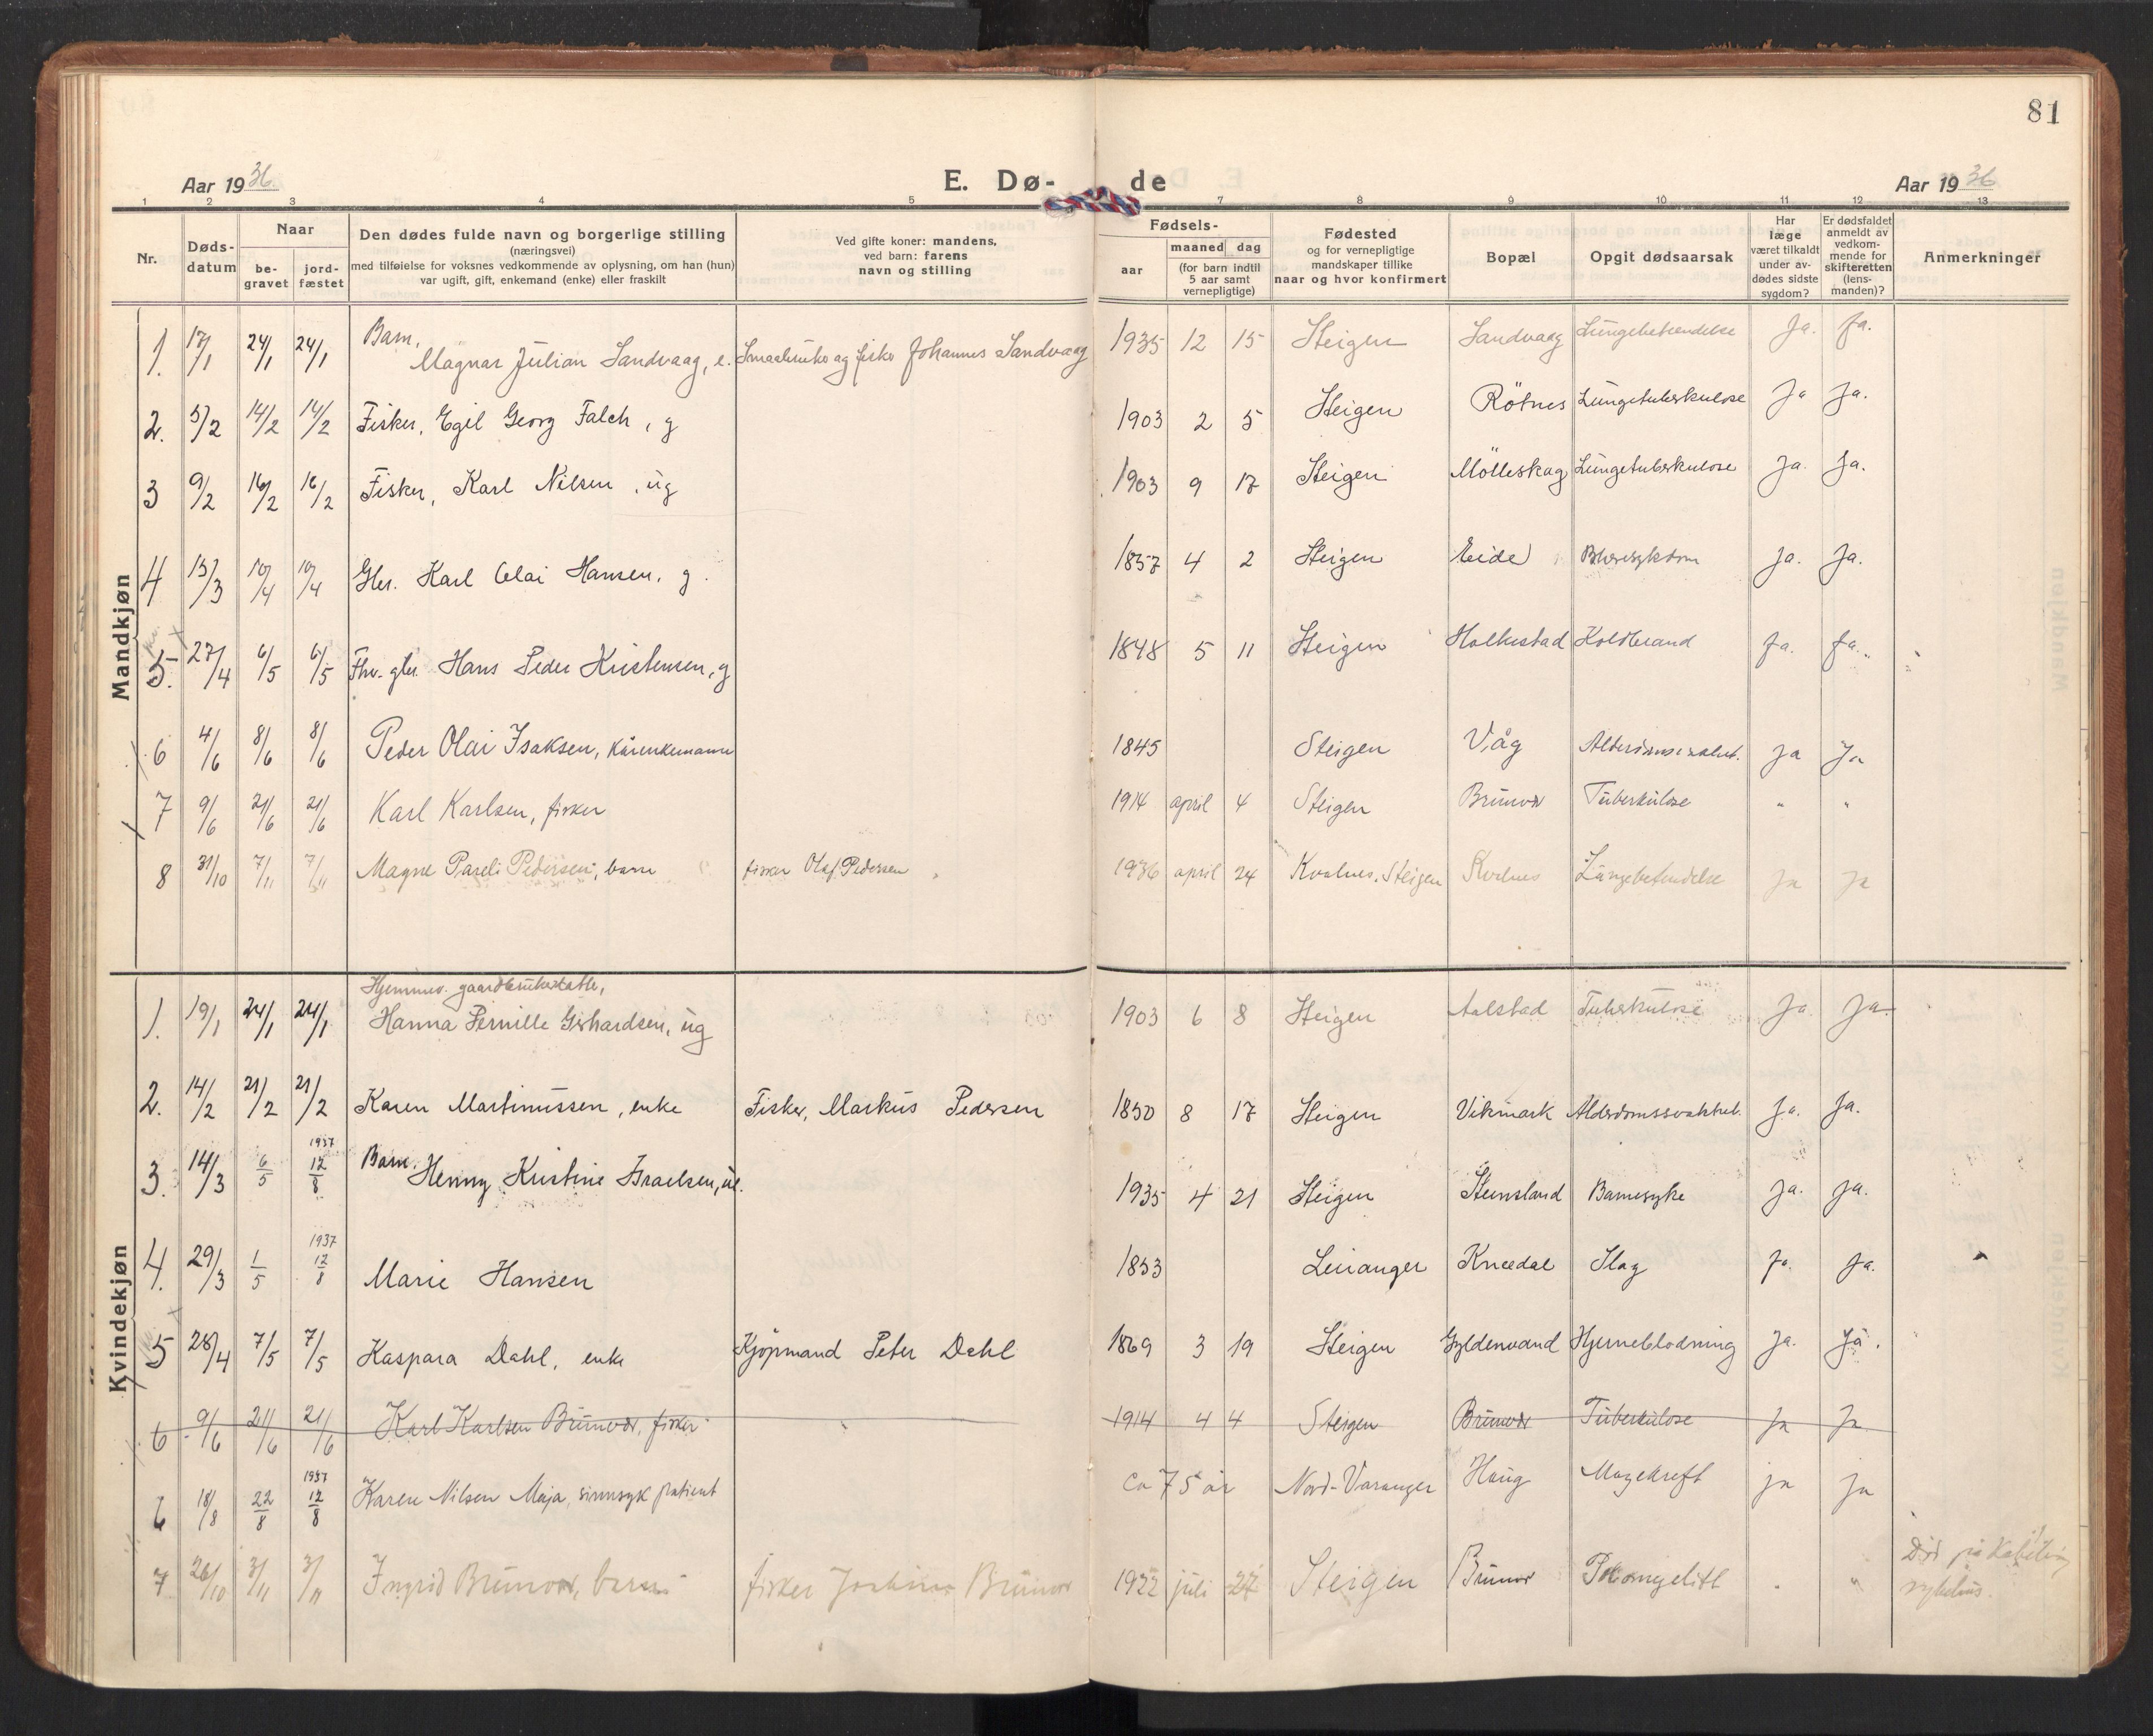 81
Aar 1936. E. Dø- de Aar 1936
1 2 3 4 5 7 8 9 10 11 12 13
Nr. Døds-datum Naar be-gravet jord-fæstet Den dødes fulde navn og borgerlige stilling (næringsvei) med tilføielse for voksnes vedkommende av oplysning, om han (hun) var ugift, gift, enkemand (enke) eller fraskilt Ved gifte koner: mandens, ved barn: farens navn og stilling Fødsels- aar maaned dag (for barn indtil 5 aar samt vernepligtige) Fødested og for vernepligtige mandskaper tillike naar og hvor konfirmert Bopæl Opgit dødsaarsak Har læge været tilkaldt under av-dødes sidste sygdom? Er dødsfaldet anmeldt av vedkom-mende for skifteretten (lens-manden)? Anmerkninger
Mandkjøn
1. 17/1 24/1 24/1 Barn, Magnar Julian Sandvaag, e. Smaabruker og fisker Johannes Sandvaag 1935 12 15 Steigen Sandvaag Lungebetændelse Ja. Ja.
2. 5/2 14/2 14/2 Fisker, Egil Georg Falch, g 1903 2 5 Steigen Rötnes Lungetuberkulose Ja Ja.
3 9/2 16/2 16/2 Fisker, Karl Nilsen, ug 1903 9 17 Steigen Mölleskag Lungetuberkulose Ja. Ja.
4 15/3 10/4 10/4 Gbr. Karl Olai Hansen, g. 1857 4 2 Steigen Eide Blæresykdom Ja. Ja.
5. 27/4 6/5 6/5 Fhv. gbr. Hans Peder Kristensen, g 1848 5 11 Steigen Holkestad Koldbrand Ja. Ja.
6 4/6 8/6 8/6 Peder Olai Isaksen, kårenkemann 1845 Steigen Våg Alderdomssvakh. Ja Ja
7 9/6 21/6 21/6 Karl Karlsen, fisker 1914 april 4 Steigen Brunvær Tuberkulose " "
8 31/10 7/11 7/11 Magne Pareli Pedersen, barn fisker Olaf Pedersen 1936 april 24 Kvalnes, Steigen Kvalnes Lungebetendelse Ja Ja
Kvindekjøn
1. 19/1 24/1 24/1 Hjemmev. gaardbrukerdatter, Hanna Pernille Gerhardsen, ug 1903 6 8 Steigen Aalstad Tuberkulose Ja Ja.
2. 14/2 21/2 21/2 Karen Martinussen, enke Fisker, Markus Pedersen 1850 8 17 Steigen Vikmark Alderdomssvakhet. Ja. Ja.
3. 14/3 6/5 1937 12/8 Barn. Henny Kristine Israelsen, ue. 1935 4 21 Steigen Steinsland Barnesyke Ja. Ja.
4. 29/3 1/5 1937 12/8 Marie Hansen 1853 Leiranger Knædal Slag Ja. Ja.
5 28/4 7/5 7/5 Kaspara Dahl, enke Kjöpmand Peter Dahl 1869 3 19 Steigen Gyldenvand Hjerneblodning Ja. Ja.
6 9/6 21/6 21/6 Karl Karlsen Brunvær, fisker 1914 4 4 Steigen Brunvær Tuberkulose Ja Ja
6 18/8 22/8 1937 12/8 Karen Nilsen Maja, sinnsyk patient ca 75 år Nord-Varanger Haug Magekreft ja ja
7 26/10 3/11 3/11 Ingrid Brunvær, barn fisker Brunvær 1922 juli 27 Steigen Brunvær " Død på sykehus.